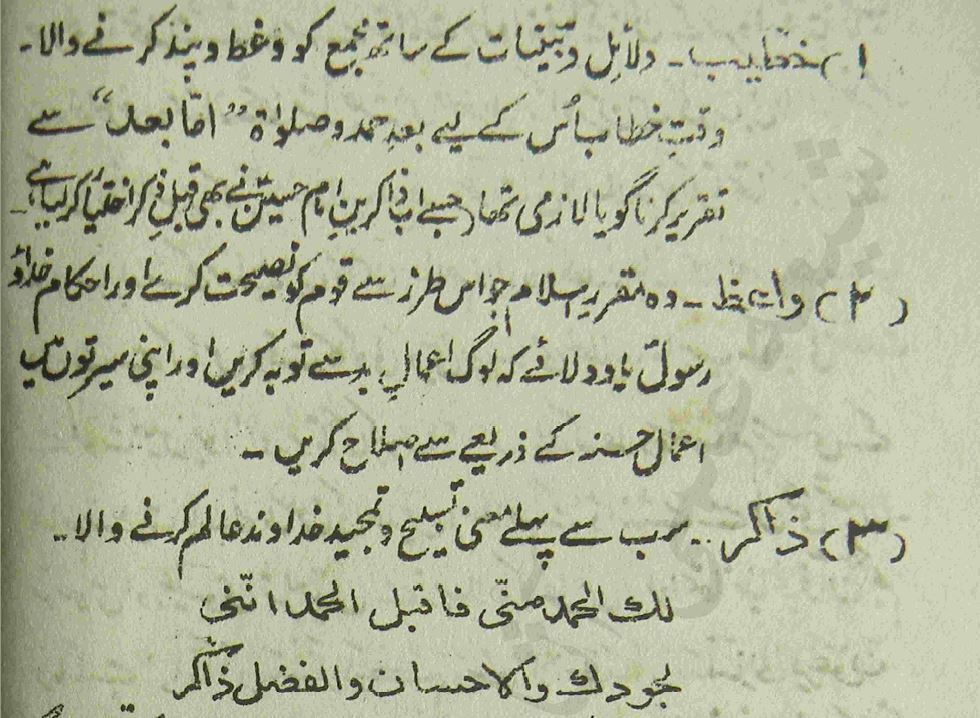 ۱) خطیب ۔ دلائل و تبنیات کے ساتھ مجمع کو وعظ و پند کرنے والا۔
وقتِ خطاب اُس کے لیے بعدِ حمد و صلواۃ ”امّا بعد“ سے
تقریر کرنا گویا لازمی تھا (جسے اب ذاکرینِ امام حسینؑ نے بھی قبلِ ذکر اختیار کر لیا ہے)۔
(۲) واعظ ۔ وہ مقررِ اسلام جو اس طرز سے قوم کو نصیحت کرے اور احکام خداؤ
رسولؐ یاد دلائے کہ لوگ اعمالِ بد سے توبہ کریں اور اپنی سیرتوں میں
اعمالِ حسنہ کے ذریعے سے اصلاح کریں ۔
(۳) ذاکر ۔ سب سے پہلے معنی تسبیح و تمجید خداوند عالم کرنے والا۔
لك الحمد منّی فاقبل الحمد انّنی
لجودك والاحسان والفضل ذاکر